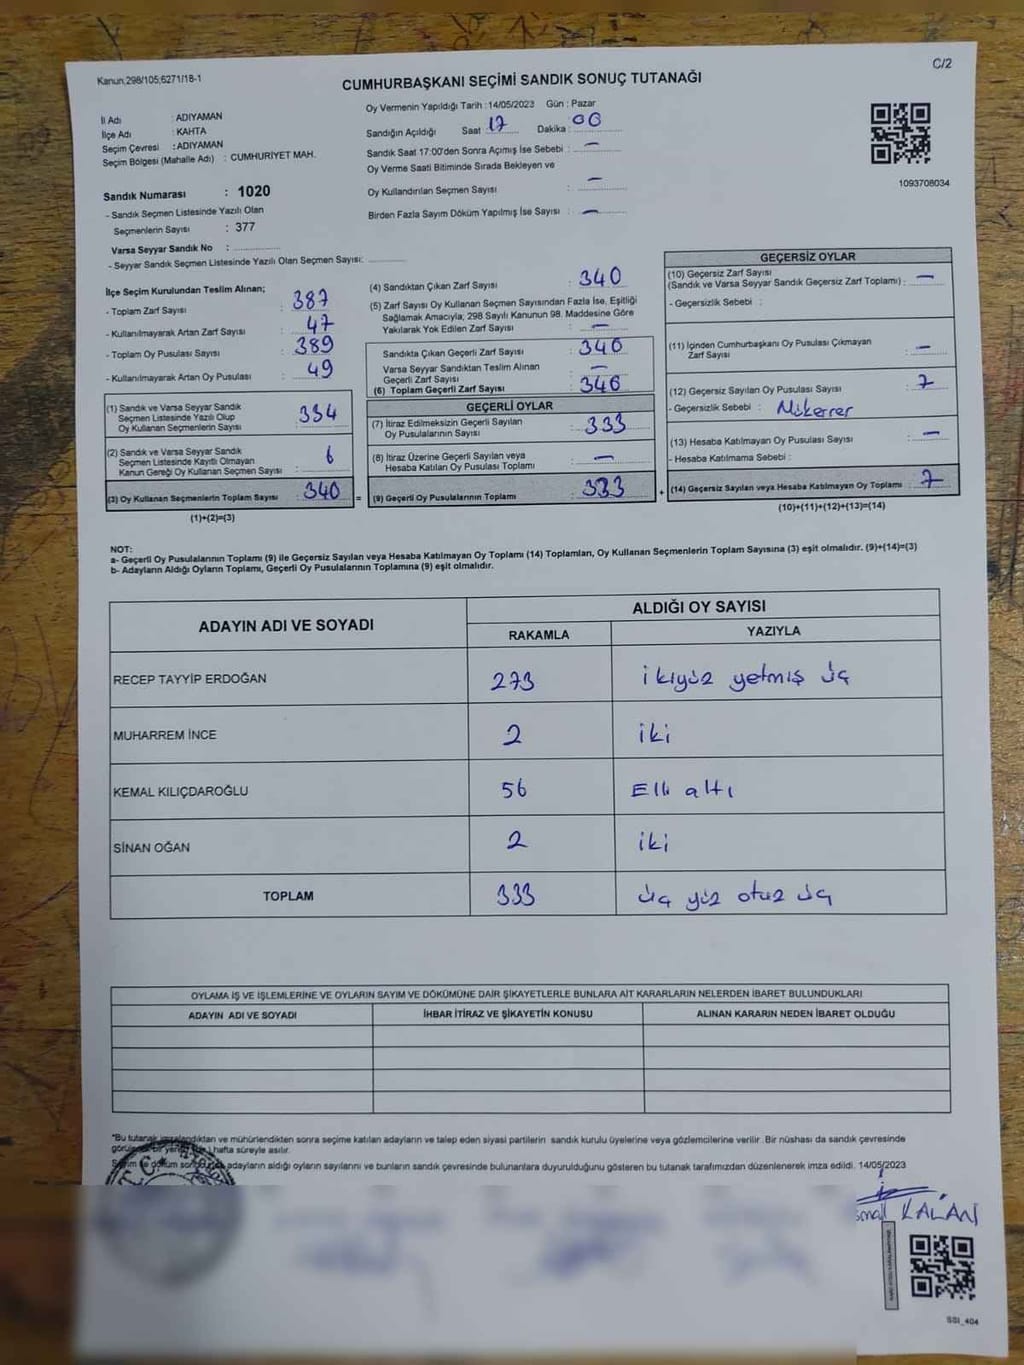 Kanun,298/105;6271/18-1
C/2
CUMHURBAŞKANI SEÇİMİ SANDIK SONUÇ TUTANAĞI
İl Adı : ADIYAMAN
İlçe Adı : KAHTA
Seçim Çevresi : ADIYAMAN
Seçim Bölgesi (Mahalle Adı) : CUMHURİYET MAH.
Sandık Numarası : 1020
- Sandık Seçmen Listesinde Yazılı Olan
Seçmenlerin Sayısı : 377
Varsa Seyyar Sandık No :
- Seyyar Sandık Seçmen Listesinde Yazılı Olan Seçmen Sayısı:
Oy Vermenin Yapıldığı Tarih : 14/05/2023 Gün : Pazar
Sandığın Açıldığı Saat : 17 Dakika : 00
Sandık Saat 17:00'den Sonra Açımış İse Sebebi : —
Oy Verme Saati Bitiminde Sırada Bekleyen ve
Oy Kullandırılan Seçmen Sayısı : —
Birden Fazla Sayım Döküm Yapılmış İse Sayısı : —
1093708034
İlçe Seçim Kurulundan Teslim Alınan;
- Toplam Zarf Sayısı : 387
- Kullanılmayarak Artan Zarf Sayısı : 47
- Toplam Oy Pusulası Sayısı : 389
- Kullanılmayarak Artan Oy Pusulası : 49
(1) Sandık ve Varsa Seyyar Sandık
Seçmen Listesinde Yazılı Olup
Oy Kullanan Seçmenlerin Sayısı : 334
(2) Sandık ve Varsa Seyyar Sandık
Seçmen Listesinde Kayıtlı Olmayan
Kanun Gereği Oy Kullanan Seçmen Sayısı : 6
(3) Oy Kullanan Seçmenlerin Toplam Sayısı : 340
(1)+(2)=(3)
(4) Sandıktan Çıkan Zarf Sayısı : 340
(5) Zarf Sayısı Oy Kullanan Seçmen Sayısından Fazla İse, Eşitliği
Sağlamak Amacıyla; 298 Sayılı Kanunun 98. Maddesine Göre
Yakılarak Yok Edilen Zarf Sayısı : —
Sandıkta Çıkan Geçerli Zarf Sayısı : 340
Varsa Seyyar Sandıktan Teslim Alınan
Geçerli Zarf Sayısı : —
(6) Toplam Geçerli Zarf Sayısı : 340
GEÇERLİ OYLAR
(7) İtiraz Edilmeksizin Geçerli Sayılan
Oy Pusulalarının Sayısı : 333
(8) İtiraz Üzerine Geçerli Sayılan veya
Hesaba Katılan Oy Pusulası Toplamı : —
= (9) Geçerli Oy Pusulalarının Toplamı : 333
GEÇERSİZ OYLAR
(10) Geçersiz Zarf Sayısı
(Sandık ve Varsa Seyyar Sandık Geçersiz Zarf Toplamı) : —
- Geçersizlik Sebebi :
(11) İçinden Cumhurbaşkanı Oy Pusulası Çıkmayan
Zarf Sayısı : —
(12) Geçersiz Sayılan Oy Pusulası Sayısı : 7
- Geçersizlik Sebebi : Mükerrer
(13) Hesaba Katılmayan Oy Pusulası Sayısı : —
- Hesaba Katılmama Sebebi :
+ (14) Geçersiz Sayılan veya Hesaba Katılmayan Oy Toplamı : 7
(10)+(11)+(12)+(13)=(14)
NOT:
a- Geçerli Oy Pusulalarının Toplamı (9) ile Geçersiz Sayılan veya Hesaba Katılmayan Oy Toplamı (14) Toplamları, Oy Kullanan Seçmenlerin Toplam Sayısına (3) eşit olmalıdır. (9)+(14)=(3)
b- Adayların Aldığı Oyların Toplamı, Geçerli Oy Pusulalarının Toplamına (9) eşit olmalıdır.
ADAYIN ADI VE SOYADI
ALDIĞI OY SAYISI
RAKAMLA YAZIYLA
RECEP TAYYİP ERDOĞAN 273 ikiyüz yetmiş üç
MUHARREM İNCE 2 iki
KEMAL KILIÇDAROĞLU 56 Elli altı
SİNAN OĞAN 2 iki
TOPLAM 333 üç yüz otuz üç
OYLAMA İŞ VE İŞLEMLERİNE VE OYLARIN SAYIM VE DÖKÜMÜNE DAİR ŞİKAYETLERLE BUNLARA AİT KARARLARIN NELERDEN İBARET BULUNDUKLARI
ADAYIN ADI VE SOYADI İHBAR İTİRAZ VE ŞİKAYETİN KONUSU ALINAN KARARIN NEDEN İBARET OLDUĞU
"Bu tutanak imzalandıktan ve mühürlendikten sonra seçime katılan adayların ve talep eden siyasi partilerin sandık kurulu üyelerine veya gözlemcilerine verilir. Bir nüshası da sandık çevresinde
bir hafta süreyle asılır.
Sayım ve döküm adayların aldığı oyların sayılarını ve bunların sandık çevresinde bulunanlara duyurulduğunu gösteren bu tutanak tarafımızdan düzenlenerek imza edildi. 14/05/2023
T.C.
KALAN
SSI_404